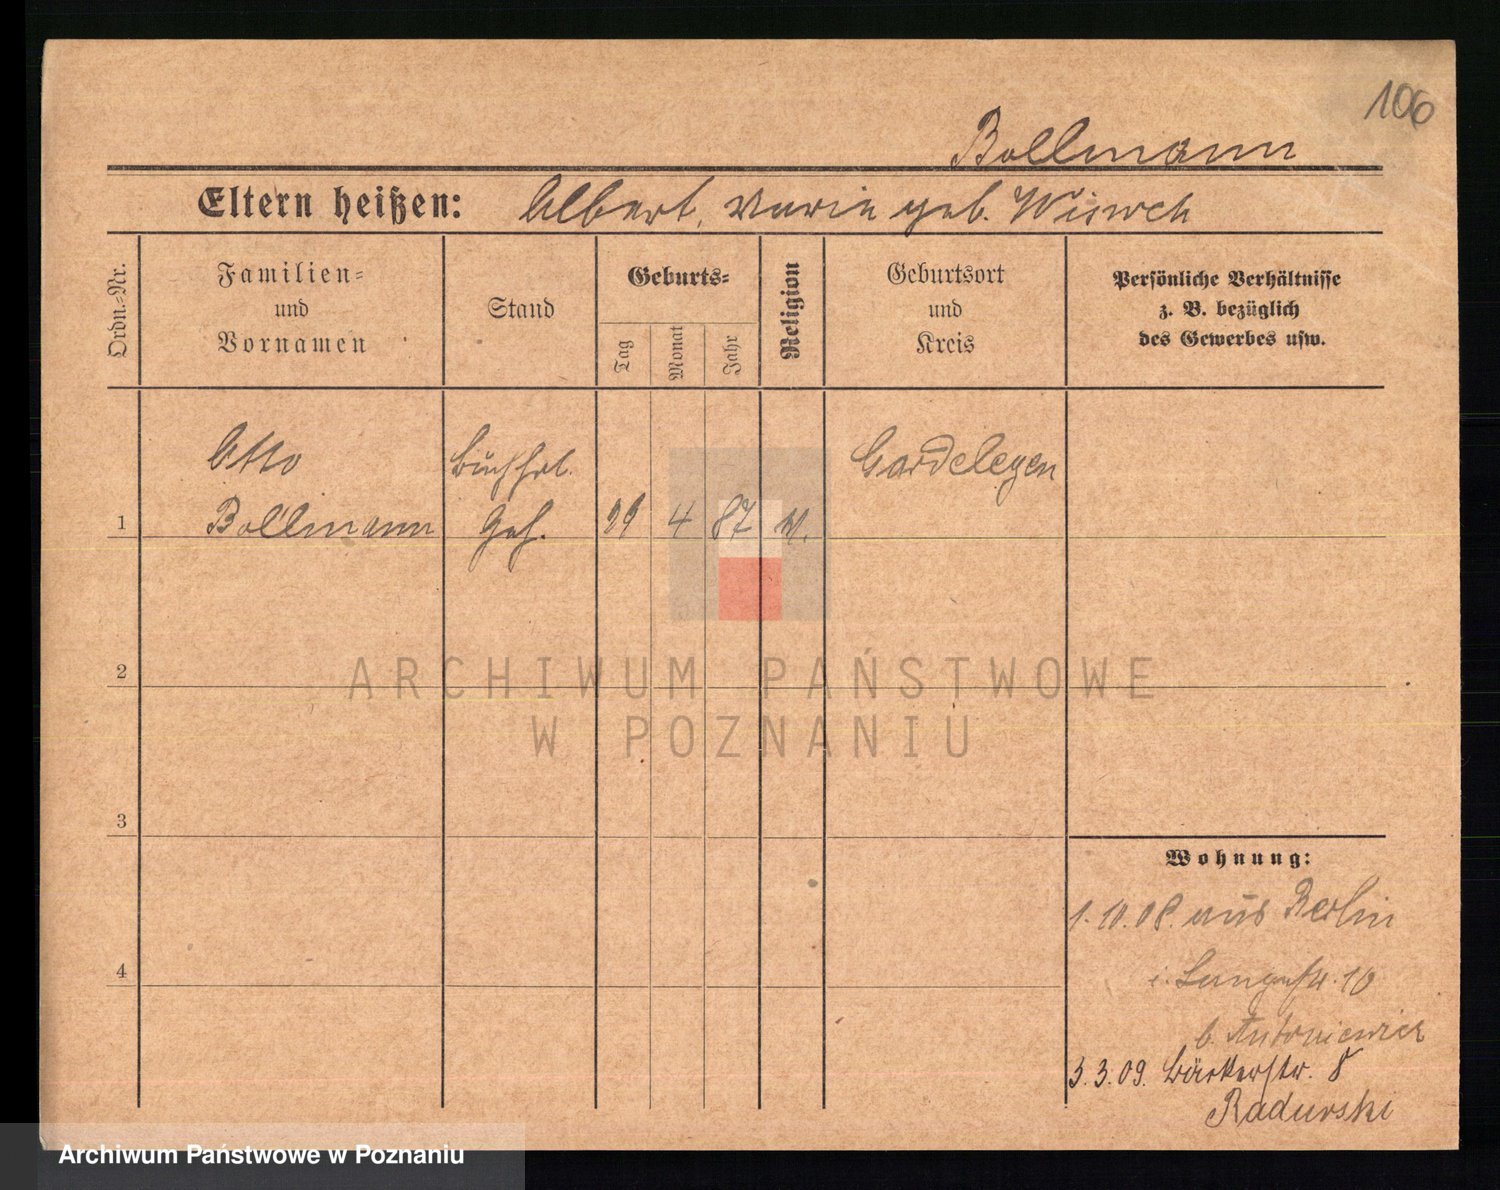 106
Bollmann
Eltern heißen: Albert, Marie geb.
Ordn.-Nr.
Familien-
und
Vornamen
Stand
Geburts-
Tag
Monat
Jahr
Religion
Geburtsort
und
Kreis
Persönliche Verhältnisse
z. B. bezüglich
des Gewerbes usw.
Otto Buchhdl. Gardelegen
1 Bollmann Geh. 29 4 87
2
ARCHIWUM PAŃSTWOWE
W POZNANIU
3
Wohnung:
1. 10. 08. aus Berlin
4
i. Langestr. 10
b. Antoniewicz
3. 3. 09. Bäckerstr. 8
Radurski
Archiwum Państwowe w Poznaniu